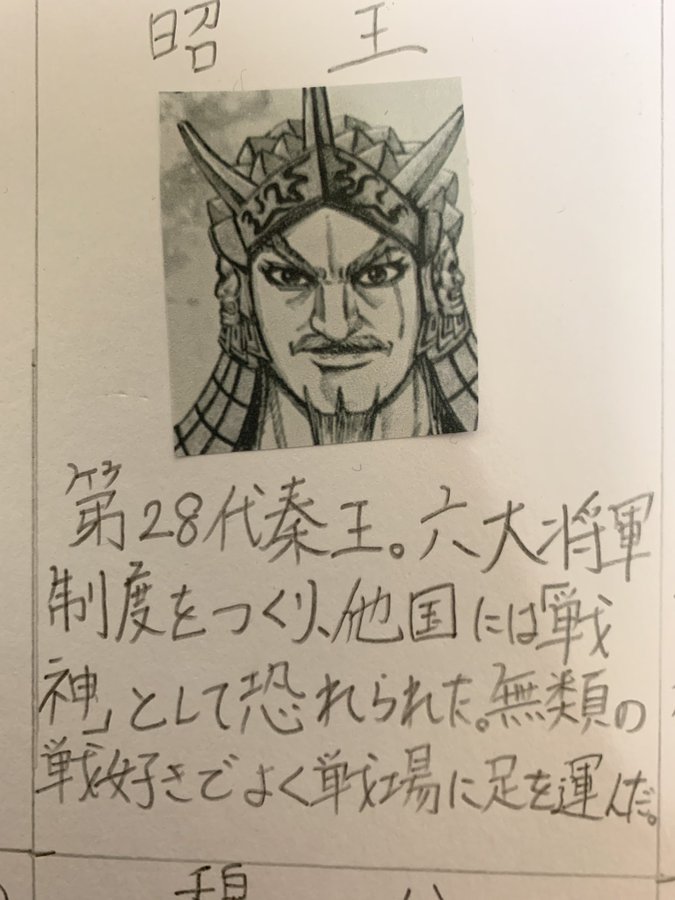 昭 王
第28代秦王。六大将軍
制度をつくり、他国には「戦
神」として恐れられた。無類の
戦好きでよく戦場に足を運んだ。
穆 公